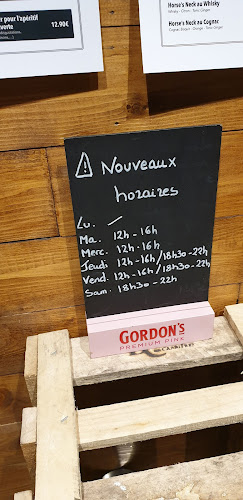 r pour l'apéritif
verte
12.90€
Horse's Neck au Whisky
Whisky - Citron - Tonic Ginger
Horse's Neck au Cognac
Nouveaux
horaires
Lu. /
Ma. 12h-16h
Merc. 12h-16h
Jeudi 12h-16h/18h30-22h
Vend. 12h-16h/18h30-22h
Sam. 18h30-22h
GORDON'S
PREMIUM PINK